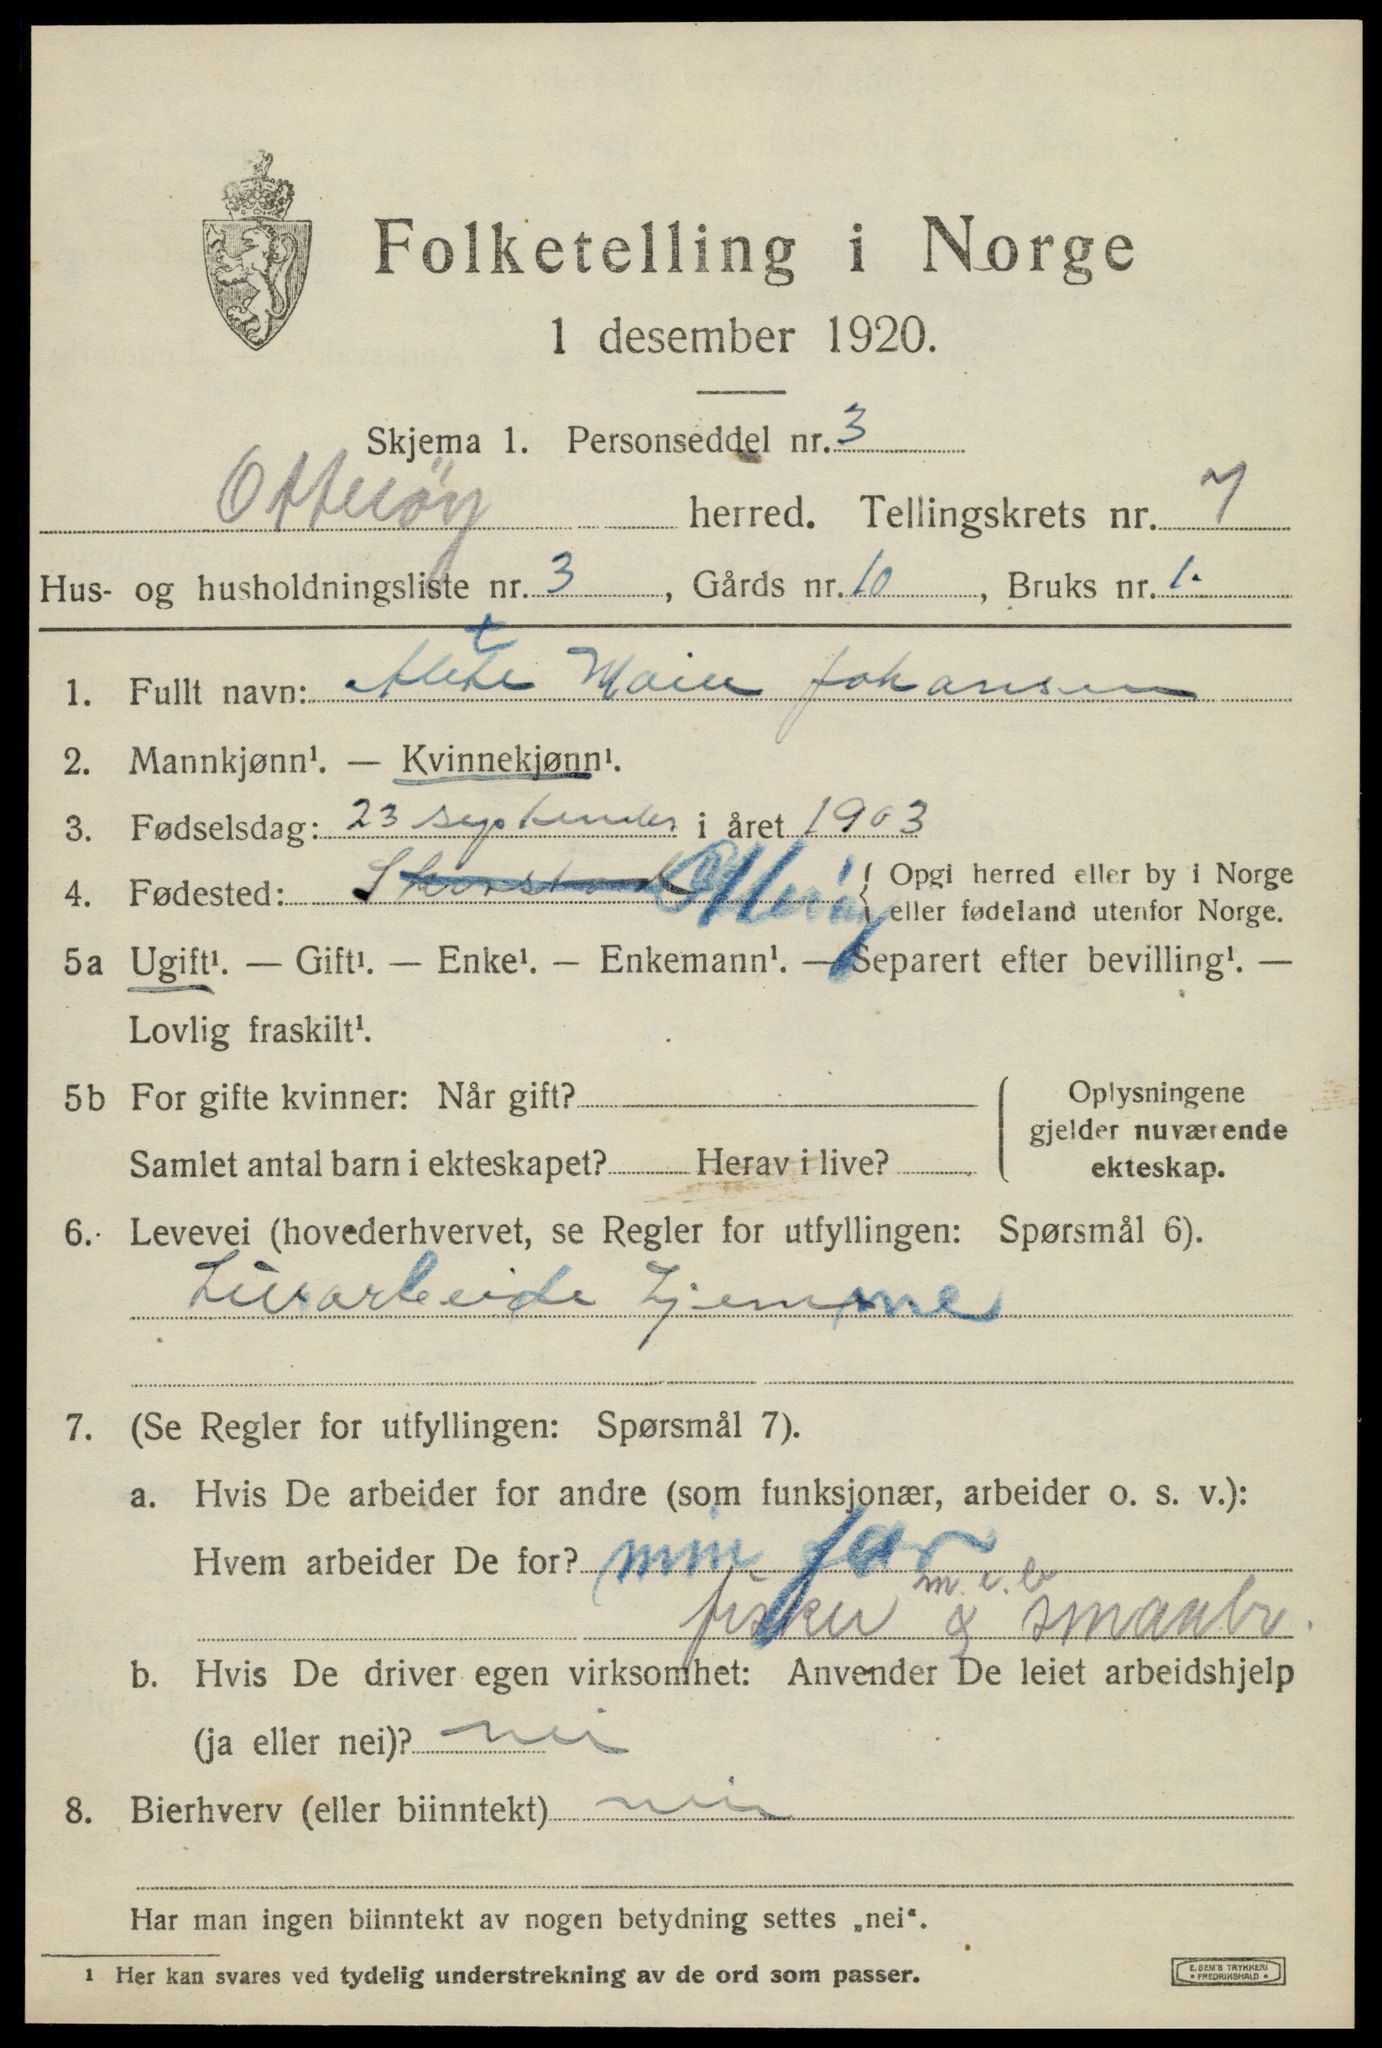 Folketelling i Norge
1 desember 1920.
Skjema 1. Personseddel nr. 3
Otterøy herred. Tellingskrets nr. 7
Hus- og husholdningsliste nr. 3, Gårds nr. 10, Bruks nr. 1.
1. Fullt navn: Johansen
2. Mannkjønn¹. — Kvinnekjønn¹.
3. Fødselsdag: 23 september i året 1903
4. Fødested: Otterøy { Opgi herred eller by i Norge
eller fødeland utenfor Norge.
5a Ugift¹. — Gift¹. — Enke¹. — Enkemann¹. — Separert efter bevilling¹. —
Lovlig fraskilt¹.
5b For gifte kvinner: Når gift?
Samlet antal barn i ekteskapet? Herav i live?
Oplysningene
gjelder nuværende
ekteskap.
6. Levevei (hovederhvervet, se Regler for utfyllingen: Spørsmål 6).
7. (Se Regler for utfyllingen: Spørsmål 7).
a. Hvis De arbeider for andre (som funksjonær, arbeider o. s. v.):
Hvem arbeider De for? min far
m. e. b
fisker & smaabr.
b. Hvis De driver egen virksomhet: Anvender De leiet arbeidshjelp
(ja eller nei)? nei
8. Bierhverv (eller biinntekt) nei
Har man ingen biinntekt av nogen betydning settes „nei“.
1 Her kan svares ved tydelig understrekning av de ord som passer.
E. SEM'S TRYKKERI
FREDRIKSHALD